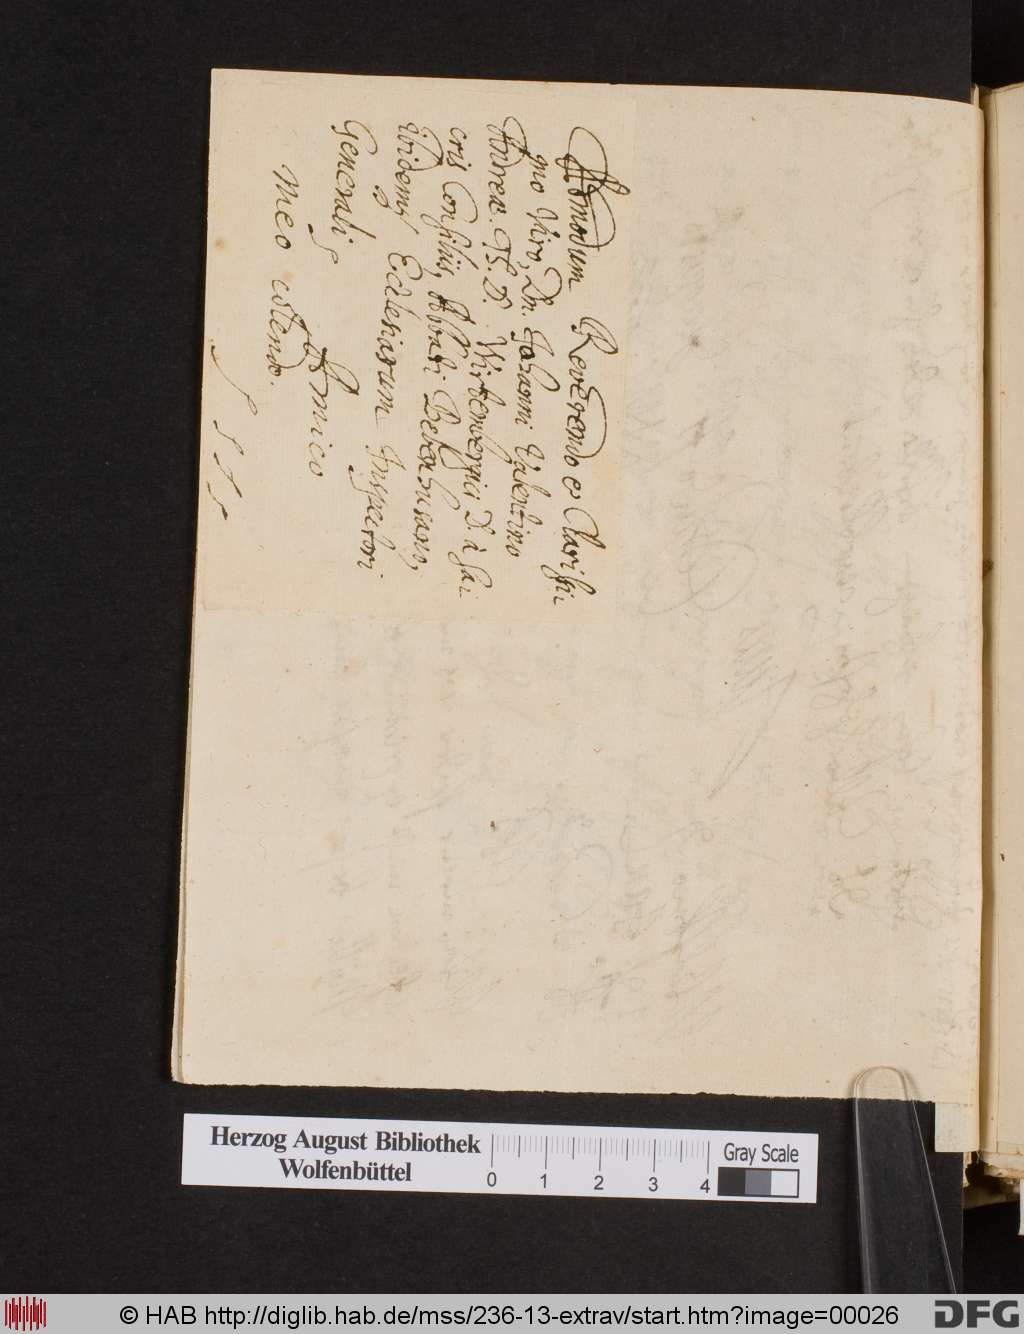 Admodum Reverendo & Clarissi
mo Viro, Dn. Johanni Valentino
Andreæ. T. D. Wirtenbergico D. à Sa
cris Consiliis, Abbati Bebenhusano,
ibidemq Ecclesiarum Inspectori
Generali, Amico
meo colendo.
Herzog August Bibliothek
Wolfenbüttel
0 1 2 3 4
Gray Scale
© HAB http://diglib.hab.de/mss/236-13-extrav/start.htm?image=00026
DFG